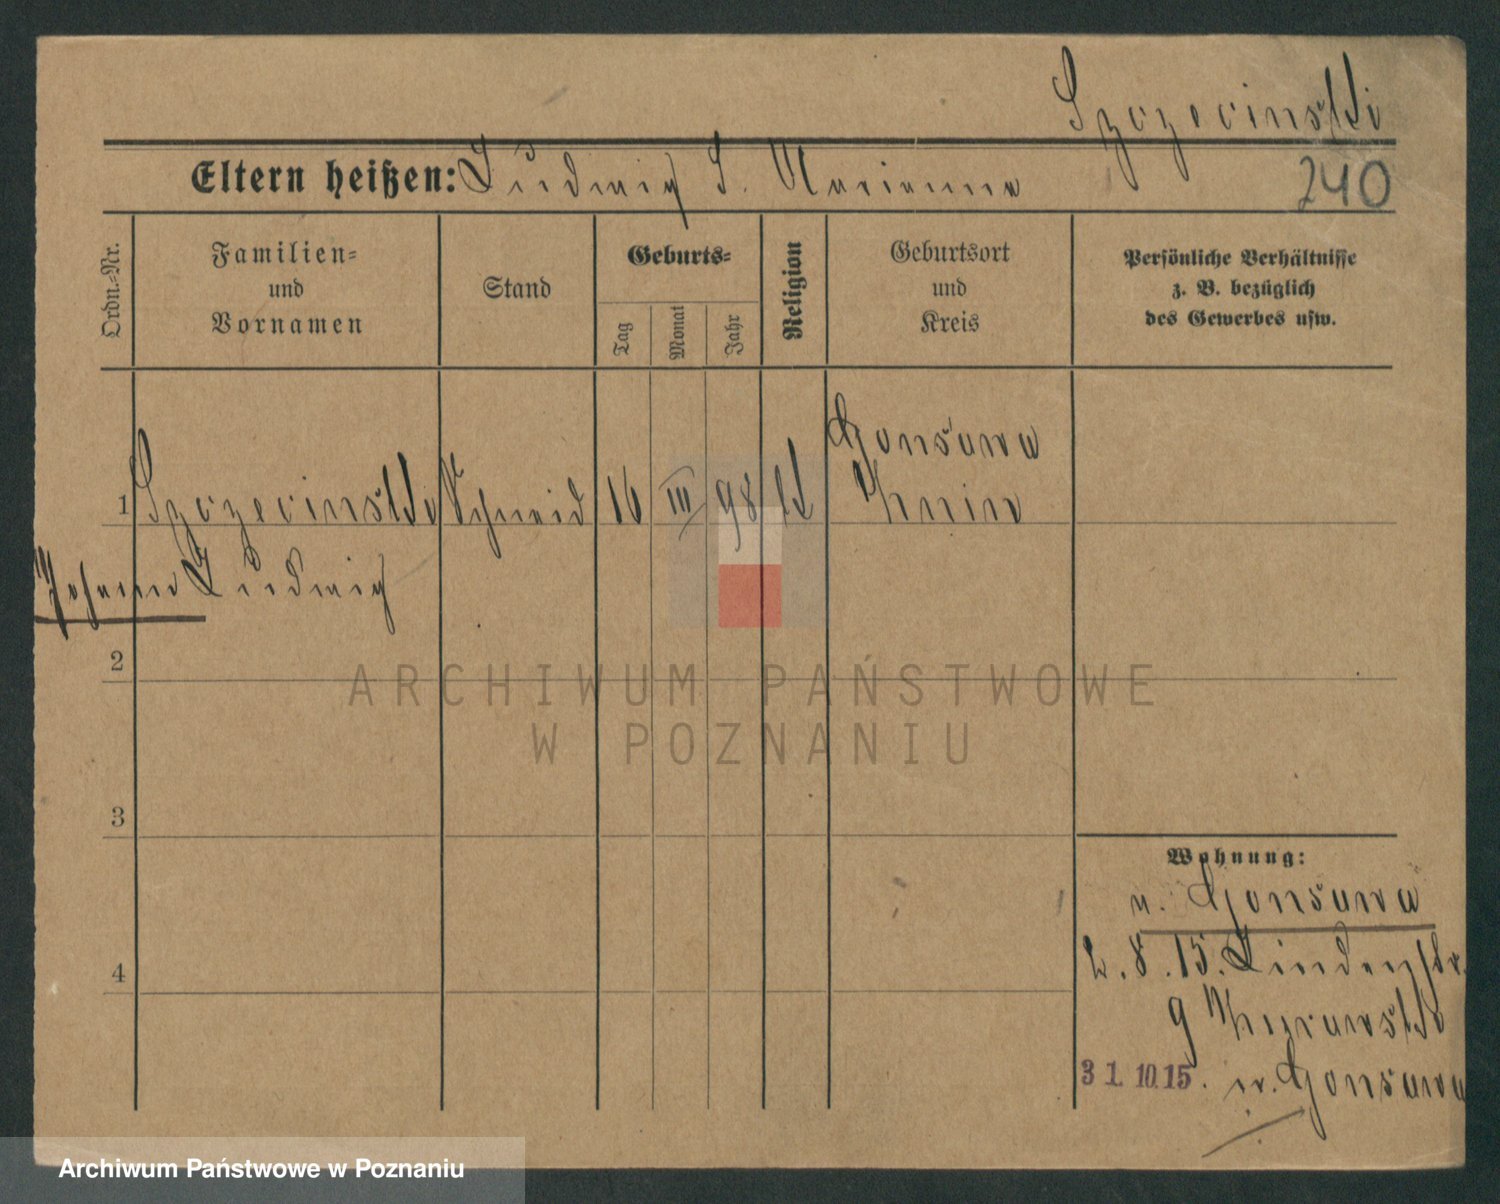 Szczecinski
Eltern heißen: Ludwig S. Marianna
240
Ordn.-Nr.
Familien-
und
Vornamen
Stand
Geburts-
Tag
Monat
Jahr
Religion
Geburtsort
und
Kreis
Persönliche Verhältnisse
z. B. bezüglich
des Gewerbes usw.
Gonsawa
1 Szczecinski Schneid 16 III 98 Znin
Johann Ludwig
2
ARCHIWUM PAŃSTWOWE
W POZNANIU
3
4
Wohnung:
n. Gonsawa
2.8.15. Lindenstr.
9
31.10.15. n. Gonsawa
Archiwum Państwowe w Poznaniu